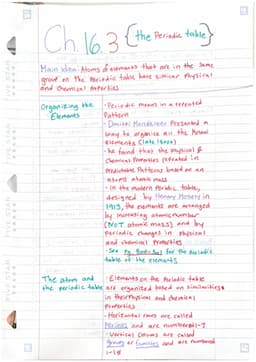 Ch. 16.3 {the Periodic table}
Main Idea: Atoms of elements that are in the same
group on the Periodic table have similar Physical
and Chemical Properties
Organizing the
Elements
• Periodic means in a repeated
Pattern
• Dmitri Mendeleev Presented a
way to organize all the known
elements (late 1800s)
• he found that the Physical &
Chemical Properties repeated in
Predictable Patterns based on an
atom's atomic mass
• In the modern Periodic table,
designed by Henry Mosely in
1913, the elements are arranged
by increasing atomic number
(NOT atomic mass) and by
Periodic changes in Physical
and chemical Properties
• See pg. for the Periodic
table of the elements
The atom and
the periodic table
• Elements on the Periodic table
are organized based on similarities
in their Physical and chemical
Properties
• Horizontal rows are called
Periods and are numbered 1-7
• Vertical columns are called
groups or families and are numbered
1-18
FIVE STAR
FIVE STAR
FIVE STAR
FIVE STAR